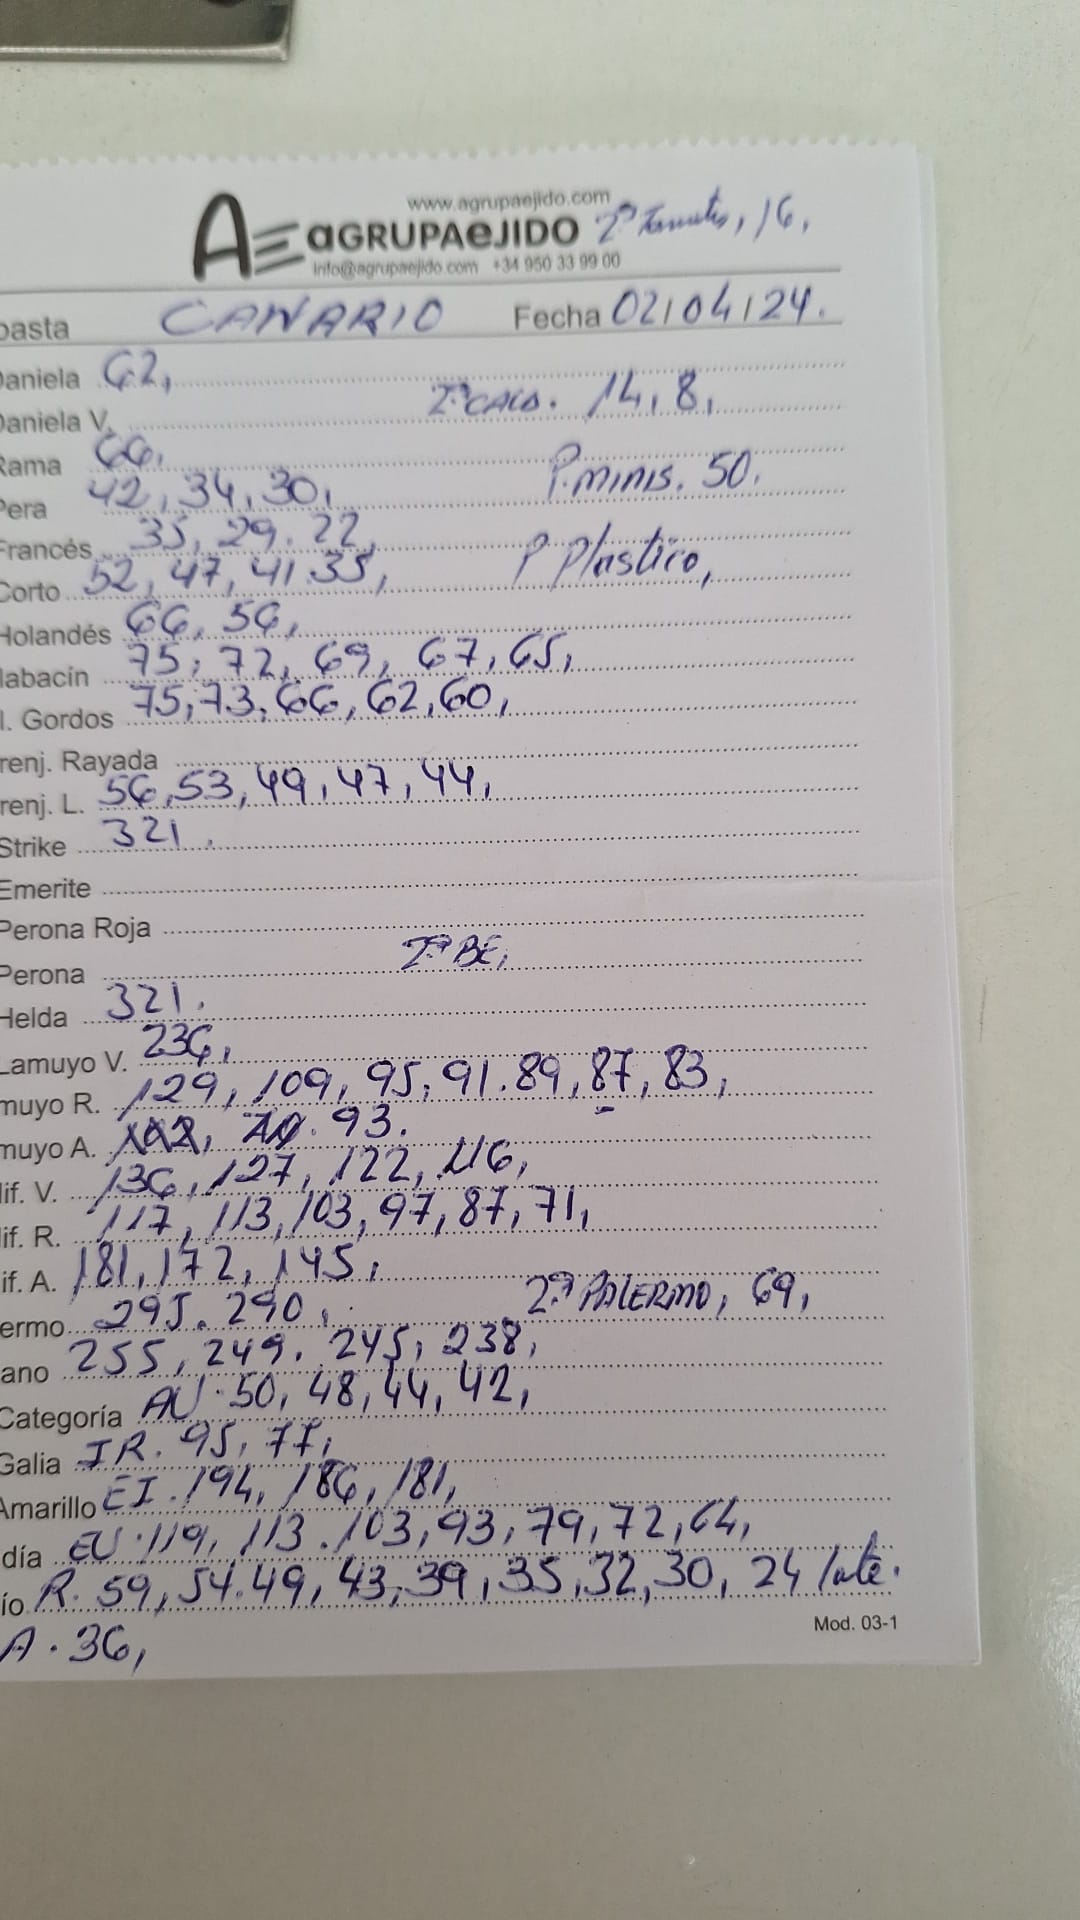 www.agrupaejido.com
AGRUPAEJIDO 2ª Tomates, 16,
info@agrupaejido.com +34 950 33 99 00
basta CANARIO Fecha 02/04/24.
Daniela 62,
Daniela V. 2ª CALB. 14, 8,
Rama 66,
Pera 42, 34, 30, P. MINIS. 50.
Francés 35, 29. 22,
Corto 52, 47, 41. 35, P Plastico,
Holandés 66, 56,
labacín 75, 72, 69, 67, 65,
l. Gordos 75, 73, 66, 62, 60,
renj. Rayada
renj. L. 56, 53, 49, 47, 44,
Strike 321.
Emerite
Perona Roja
Perona 2ª BE,
Helda 321.
Lamuyo V. 236,
muyo R. 129, 109, 95, 91. 89, 87, 83,
muyo A. 93.
lif. V. 136, 127, 122, 116,
lif. R. 117, 113, 103, 97, 87, 71,
if. A. 181, 172, 145,
ermo 295. 290, 2ª PALERMO, 69,
ano 255, 249. 245, 238,
Categoría AU. 50, 48, 44, 42,
Galia IR. 95, 77,
Amarillo EI. 194, 186, 181,
día EU. 119, 113. 103, 93, 79, 72, 64,
ío R. 59, 54. 49, 43, 39, 35, 32, 30, 24 late.
A. 36,
Mod. 03-1